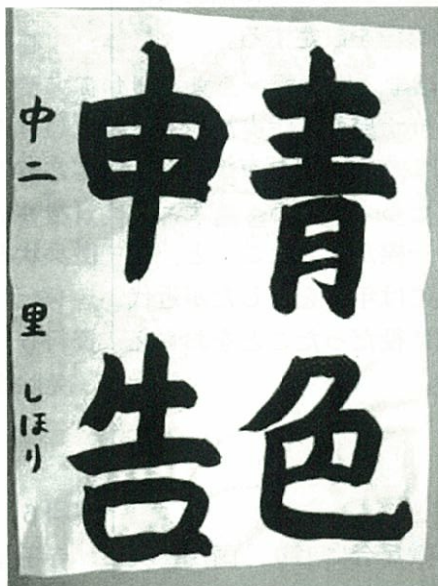 青色
申告
中二 里 しほり